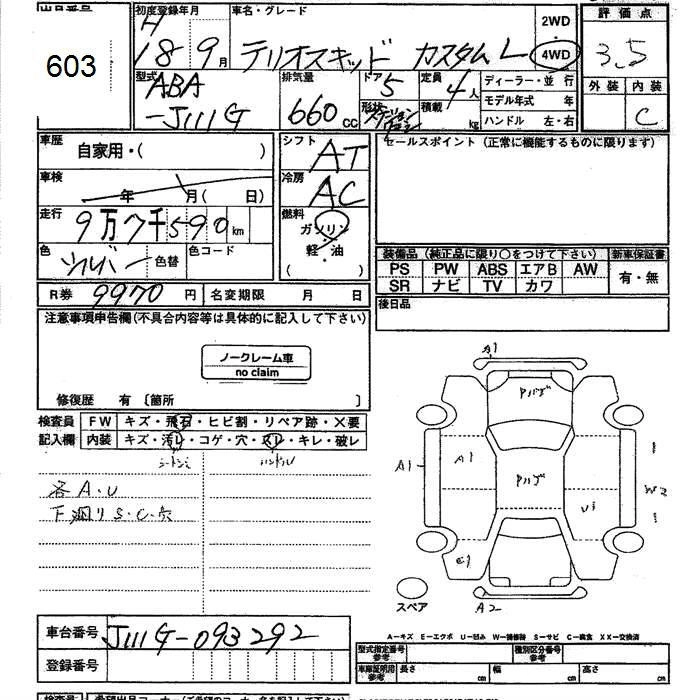 603
初度登録年月 車名・グレード 2WD 評価点
H 18 9月 テリオスキッド カスタム L 4WD 3.5
型式 排気量 ドア 定員 ディーラー・並行 外装 内装
ABA 5 4人 モデル年式 年
-J111G 660cc 形状 積載 kg ハンドル 左・右 C
車歴 自家用・( ) シフト AT セールスポイント (正常に機能するものに限ります)
車検 年 月( 日) 冷房 AC
走行 9万7千590km 燃料 ガソリン・軽・油
色 シルバー 色替 色コード ( )
装備品 (純正品に限り○をつけて下さい) 新車保証書
PS PW ABS エアB AW 有・無
SR ナビ TV カワ
R券 9970円 名変期限 月 日 後日品
注意事項申告欄(不具合内容等は具体的に記入して下さい)
ノークレーム車
no claim
修復歴 有 〔箇所 〕
検査員 FW キズ・飛石・ヒビ割・リペア跡・×要
記入欄 内装 キズ・汚レ・コゲ・穴・スレ・キレ・破レ
ハンドル
各A.U
下廻りS.C.穴
A1
Pハゲ
A1 A1 Pハゲ W2
U1
E1
A2
スペア
A-キズ E-エクボ U-凹み W-補修跡 S-サビ C-腐食 XX-交換済
車台番号 J111G-093292
登録番号
型式指定番号 参考 種別区分番号 参考
車庫証明用 参考 長さ cm 幅 cm 高さ cm